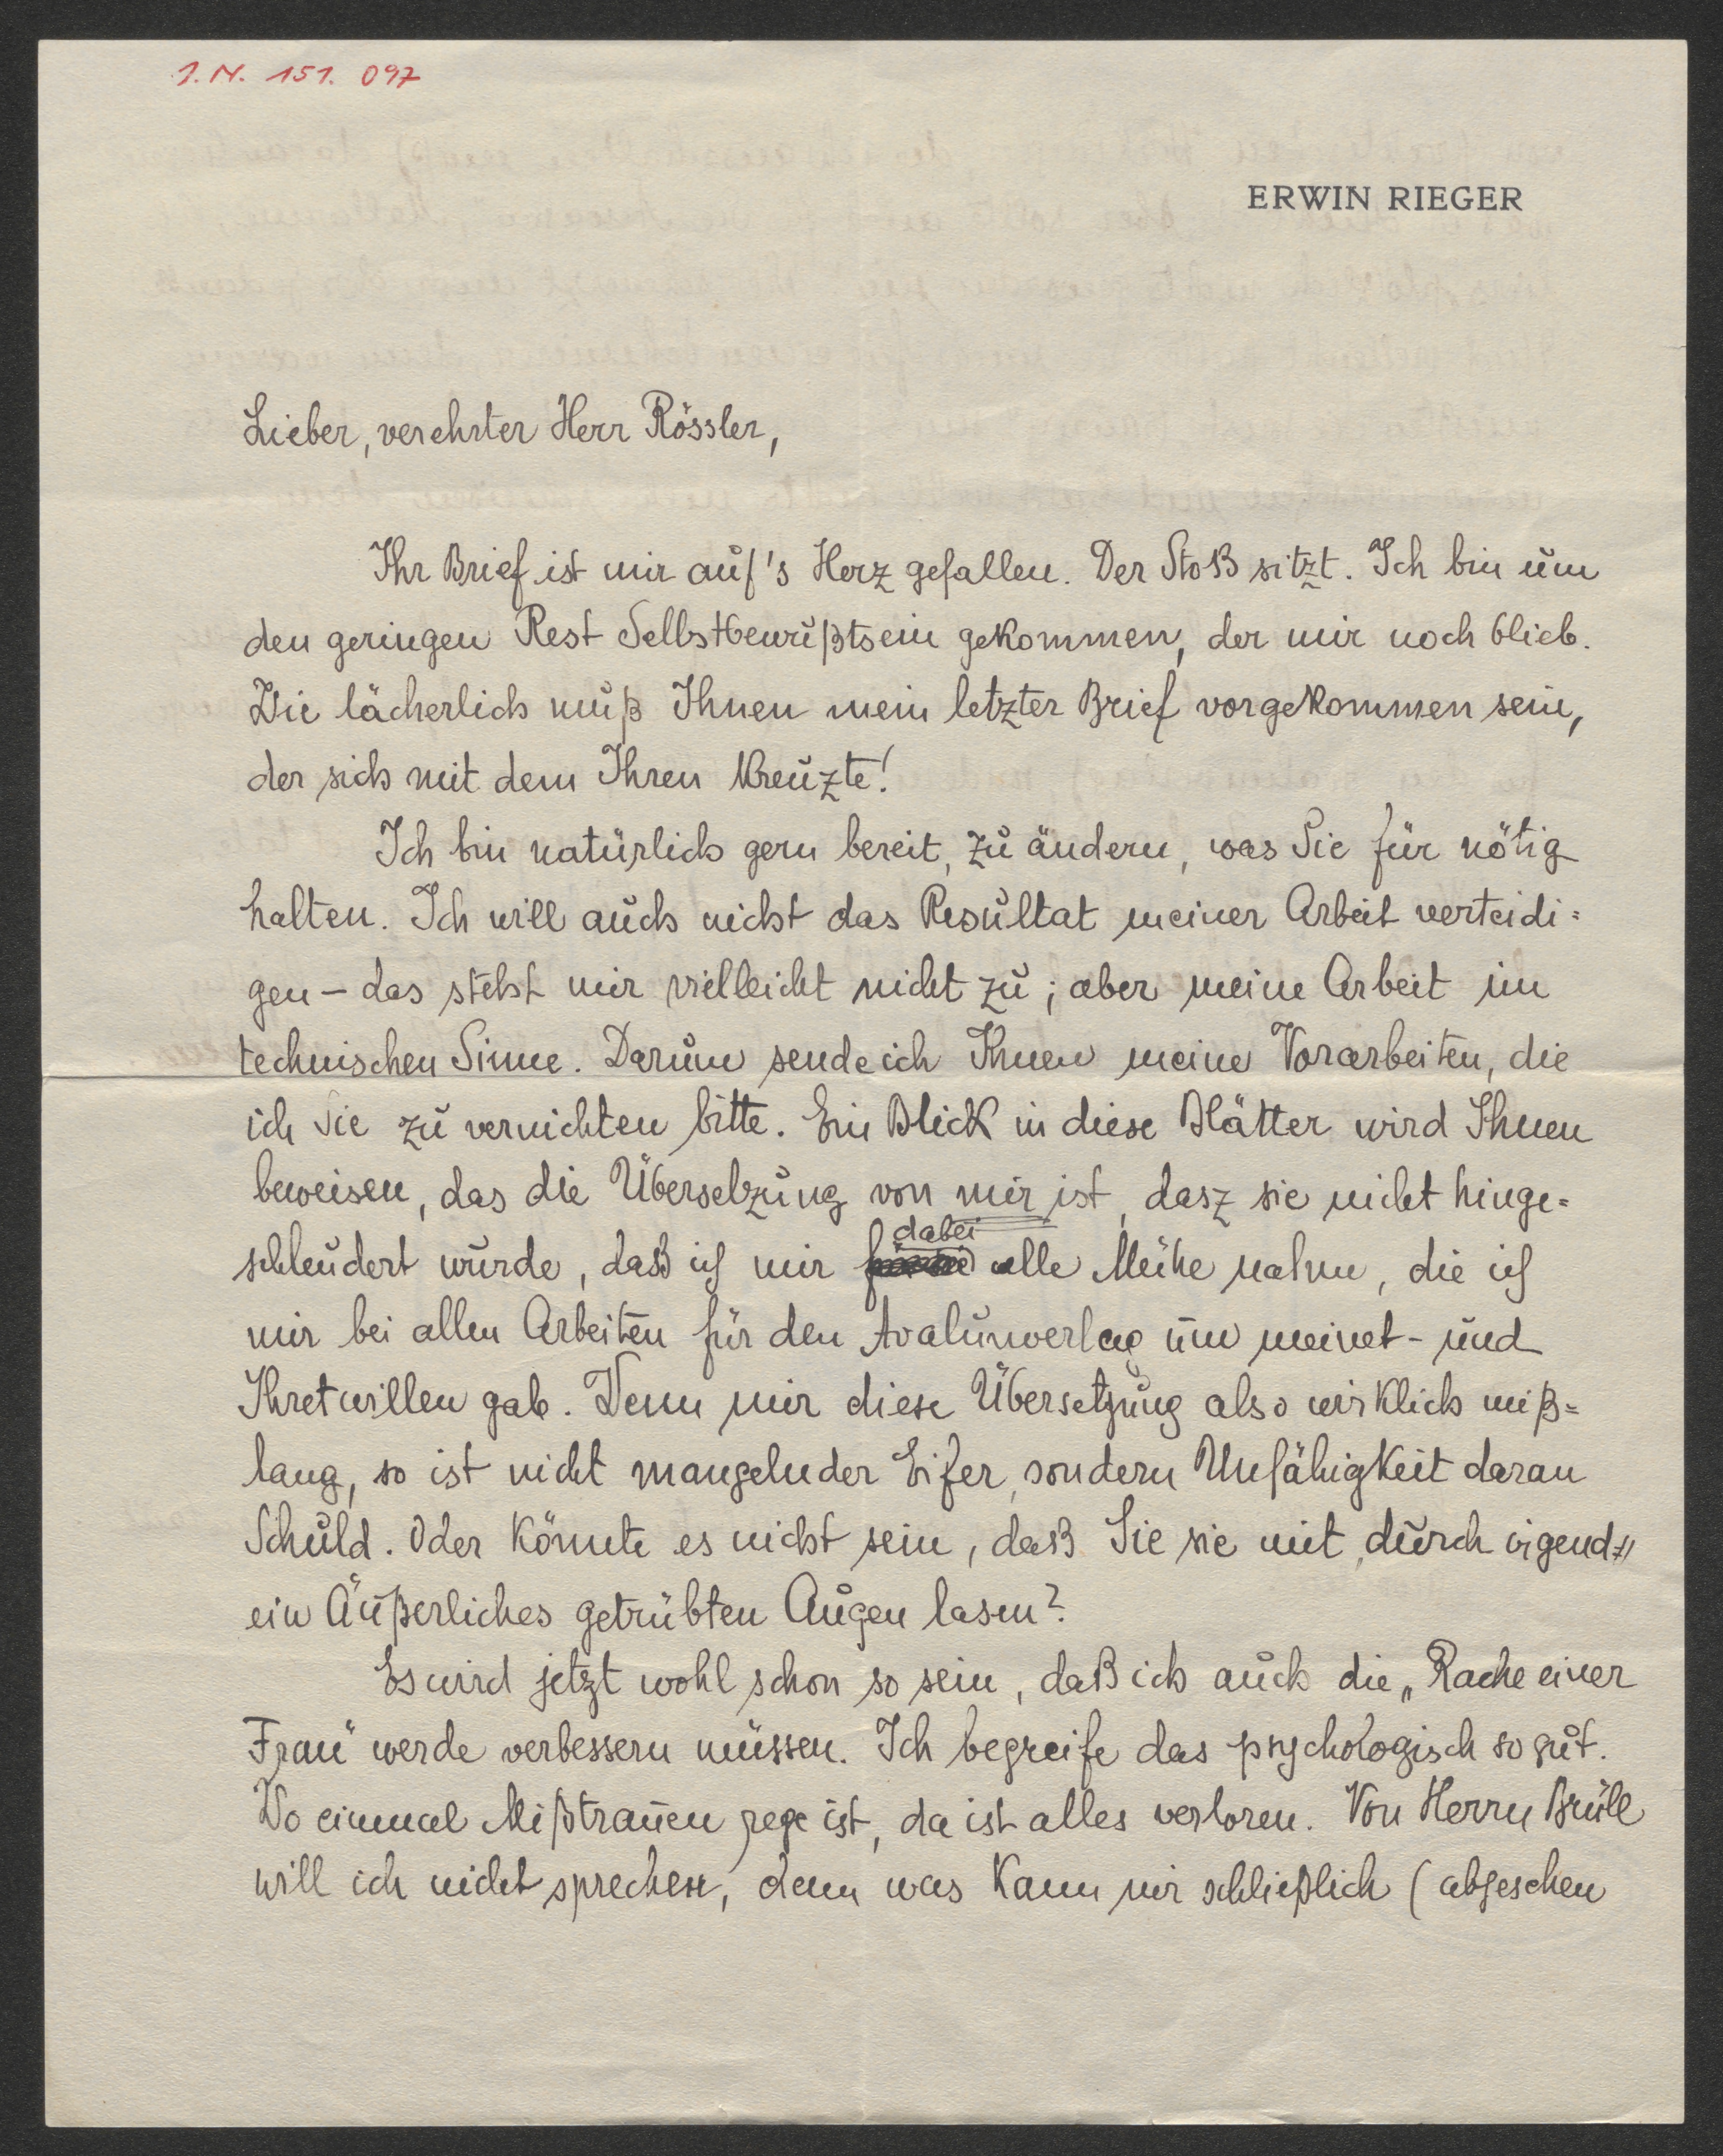 J. N. 151. 097
ERWIN RIEGER
Lieber, verehrter Herr Rössler,
Ihr Brief ist mir auf's Herz gefallen. Der Stoß sitzt. Ich bin um
den geringen Rest Selbstbewußtsein gekommen, der mir noch blieb.
Wie lächerlich muß Ihnen mein letzter Brief vorgekommen sein,
der sich mit dem Ihren kreuzte!
Ich bin natürlich gern bereit, zu ändern, was Sie für nötig
halten. Ich will auch nicht das Resultat meiner Arbeit verteidi=
gen – das steht mir vielleicht nicht zu; aber meine Arbeit im
technischen Sinne. Darum sende ich Ihnen meine Vorarbeiten, die
ich Sie zu vernichten bitte. Ein Blick in diese Blätter wird Ihnen
beweisen, das die Übersetzung von mir ist, dasz sie nicht hinge=
schleudert wurde, daß ich mir dabei alle Mühe nahm, die ich
mir bei allen Arbeiten für den Avalunverlag um meinet- und
Ihretwillen gab. Wenn mir diese Übersetzung also wirklich miß=
lang, so ist nicht mangelnder Eifer, sondern Unfähigkeit daran
Schuld. Oder könnte es nicht sein, daß Sie sie mit, durch irgend=
ein Äußerliches getrübten Augen lasen?
Es wird jetzt wohl schon so sein, daß ich auch die „Rache einer
Frau" werde verbessern müssen. Ich begreife das psychologisch so gut.
Wo einmal Mißtrauen rege ist, da ist alles verloren. Von Herrn Brüll
will ich nicht sprechen, denn was kann mir schließlich (abgesehen